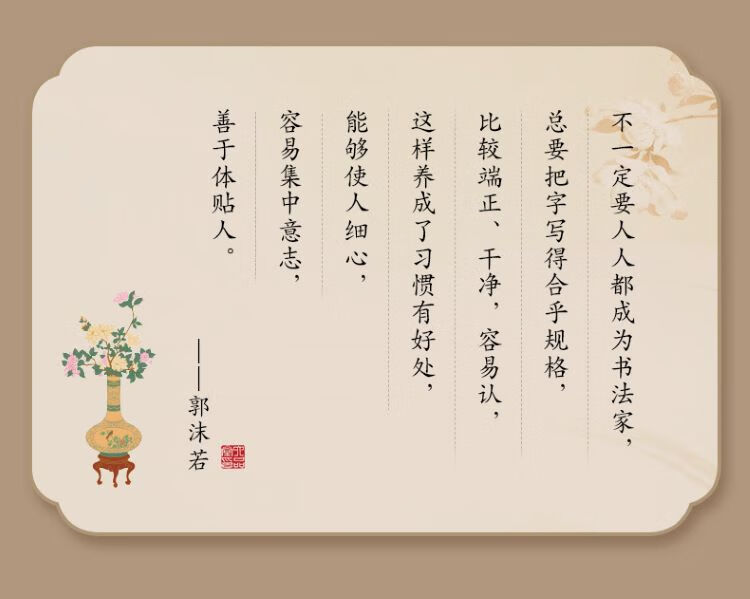 不一定要人人都成为书法家，
总要把字写得合乎规格，
比较端正、干净，容易认，
这样养成了习惯有好处，
能够使人细心，
容易集中意志，
善于体贴人。
——郭沫若